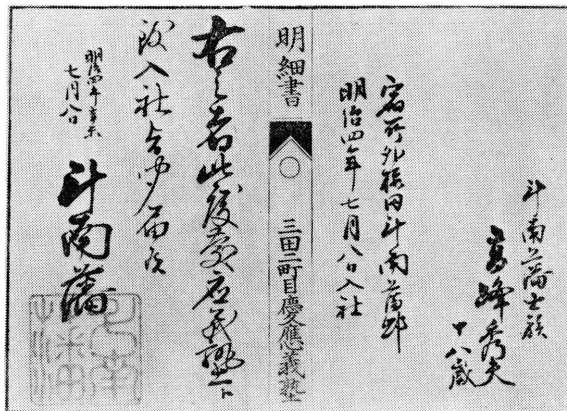 斗南藩士族
高峰秀夫
十八歳
宿所外桜田斗南藩邸
明治四年七月八日入社
明細書
三田二町目慶應義塾
右之者此度慶應義塾江
致入社
明治四年辛未
七月八日
斗南藩